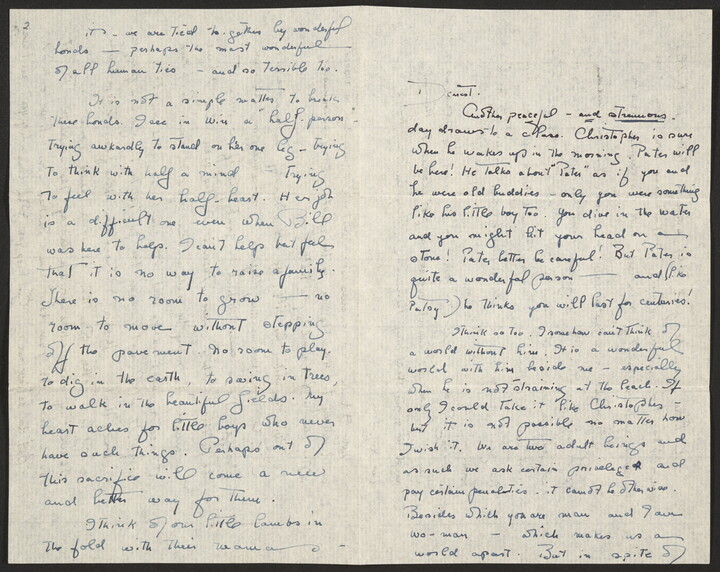 Dearest.
Another peaceful - and strenuous -
day draws to a close. Christopher is sure
when he wakes up in the morning. Pater will
be here! He talks about "Pater as if you and
he were old buddies - only you were something
like his little boy too. You dive in the water
and you might hit your head on a
stone! Pater better be careful! But Pater is
quite a wonderful person — and (like
Patsy) he thinks you will last for centuries!
I think so too. I somehow can't think of
a world without him. It is a wonderful
world with him beside me - especially
when he is not straining at the leash. If
only I could take it like Christopher -
but it is not possible no matter how
I wish it. We are two adult beings and
as such we ask certain privileges and
pay certain penalties - it cannot be otherwise.
Besides which you are man and I am
wo-man - which makes us a
world apart. But in spite of
2
it - we are tied together by wonderful
bonds — perhaps the most wonderful
of all human ties - and so terrible too.
It is not a simple matter to break
these bonds. I see in Win a "half-person"
trying awkwardly to stand on her one leg - trying
to think with half a mind trying
to feel with her half-heart. Her job
is a difficult one even when Bill
was here to help. I can't help but feel
that it is no way to raise a family.
There is no room to grow — no
room to move without stepping
off the pavement. No room to play.
to dig in the earth, to swing in trees,
to walk in the beautiful fields. My
heart aches for little boys who never
have such things. Perhaps out of
this sacrifice will come a new
and better way for them.
I think of our little lambs in
the fold with their mama -